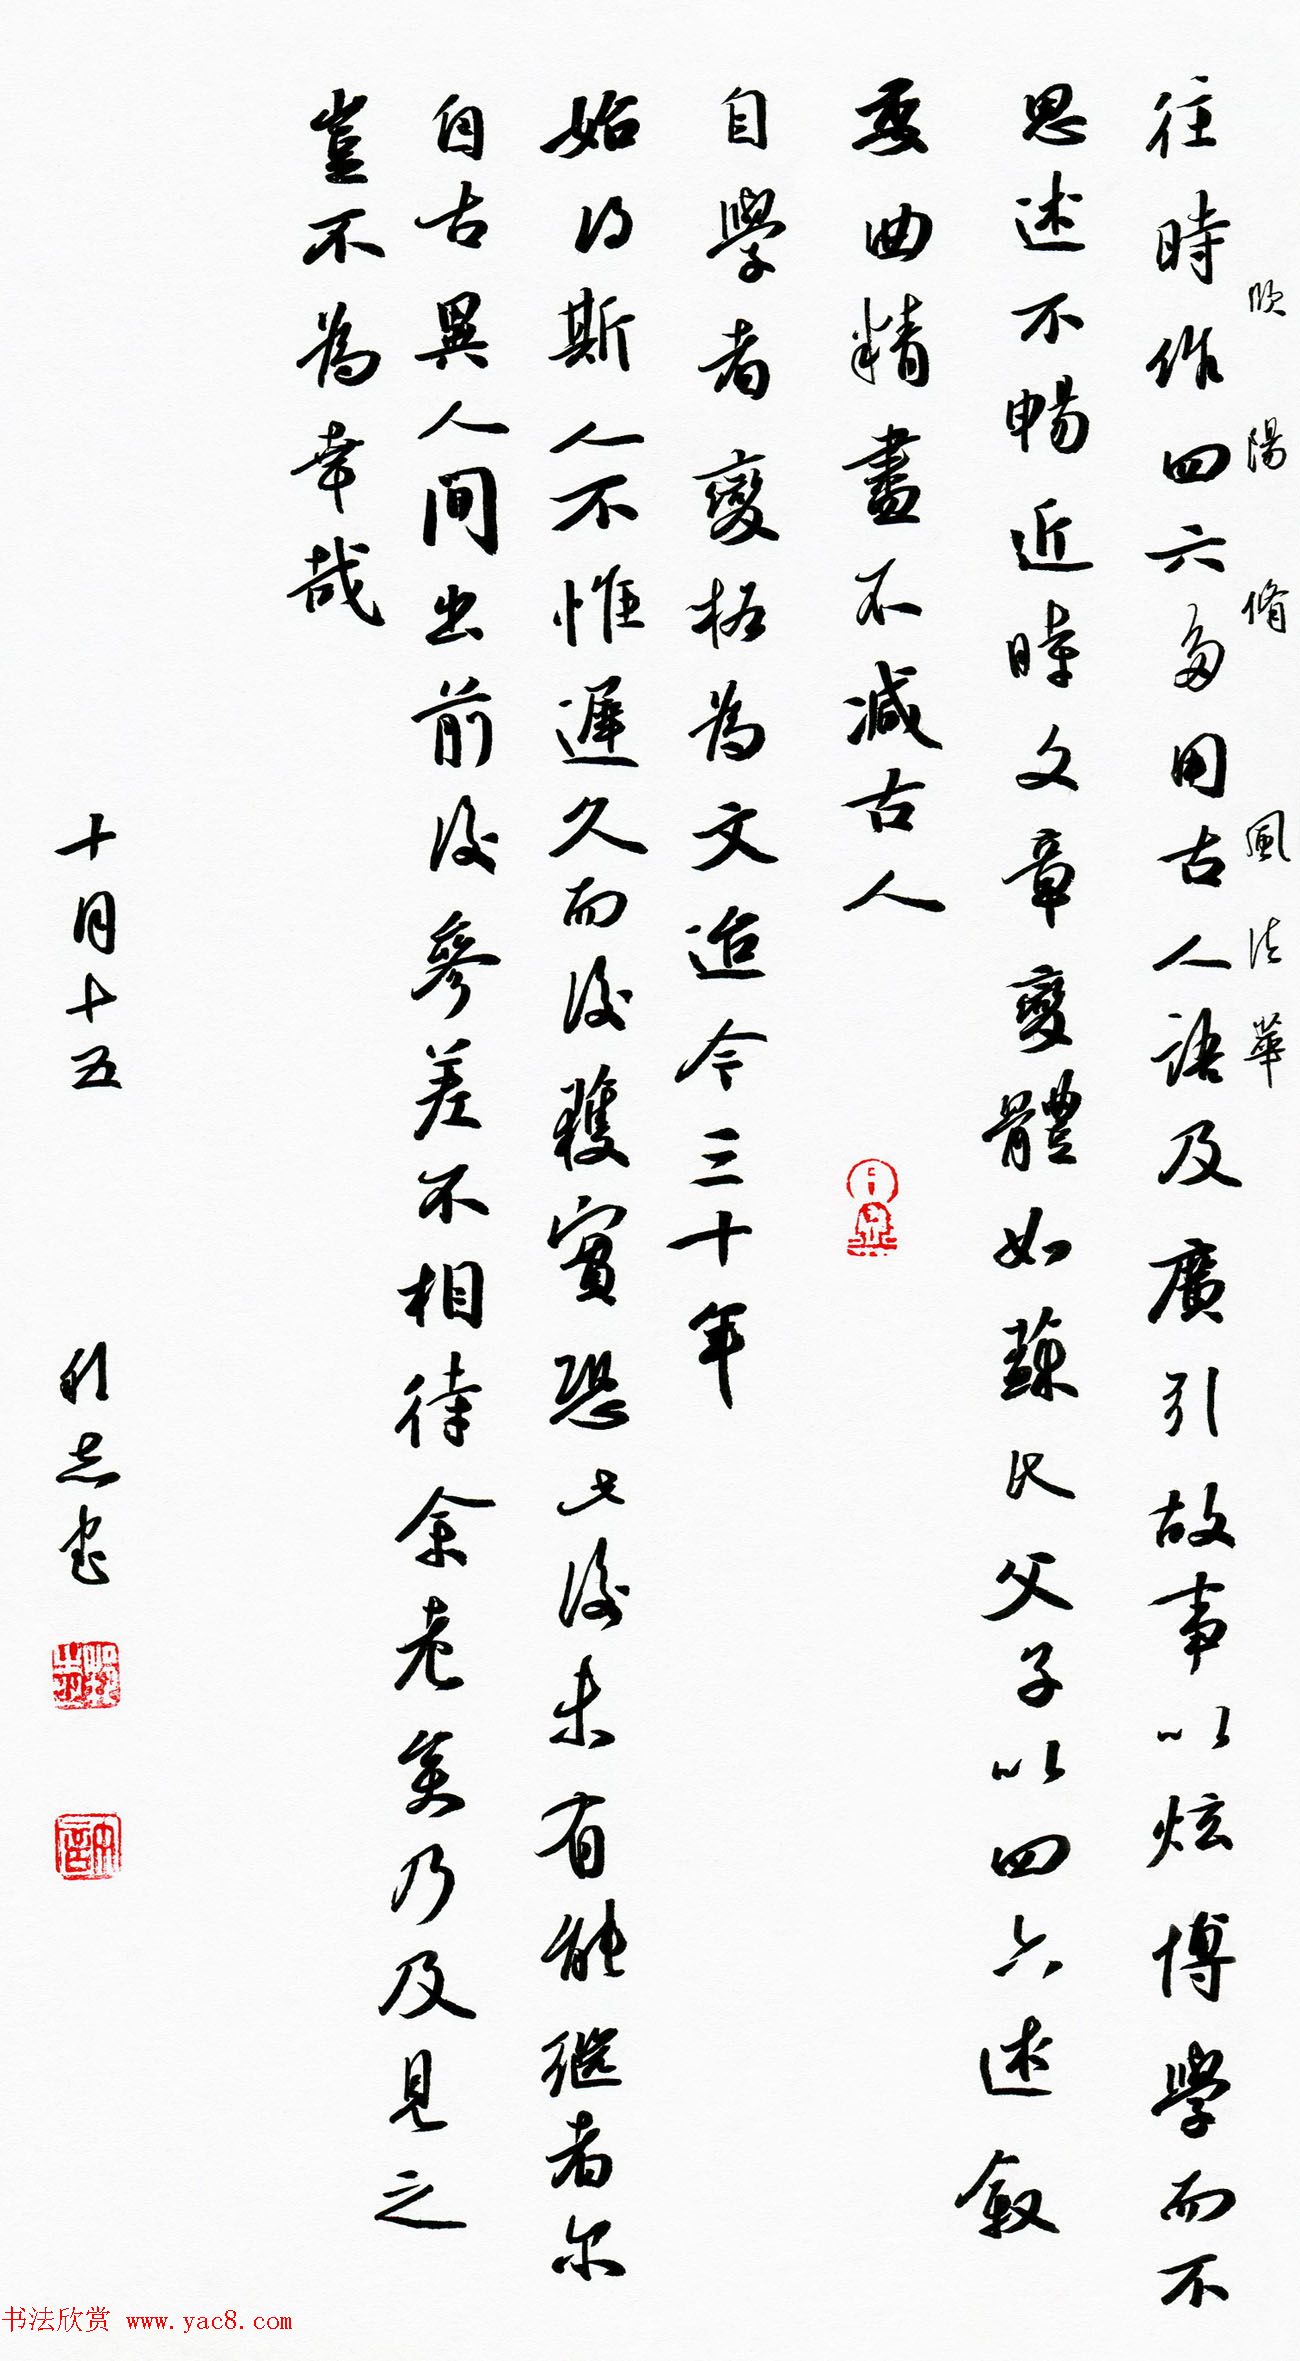 欧陽脩 風法華
往時作四六多用古人語及廣引故事以炫博學而不
思述不暢近時文章變體如蘇氏父子以四六述敘
委曲精盡不減古人
自學者變格為文迨今三十年
始得斯人不惟遲久而後獲實恐此後未有能继者尔
自古異人間出前後參差不相待余老矣乃及見之
豈不為幸哉
十月十五
志書
书法欣赏 www.yac8.com